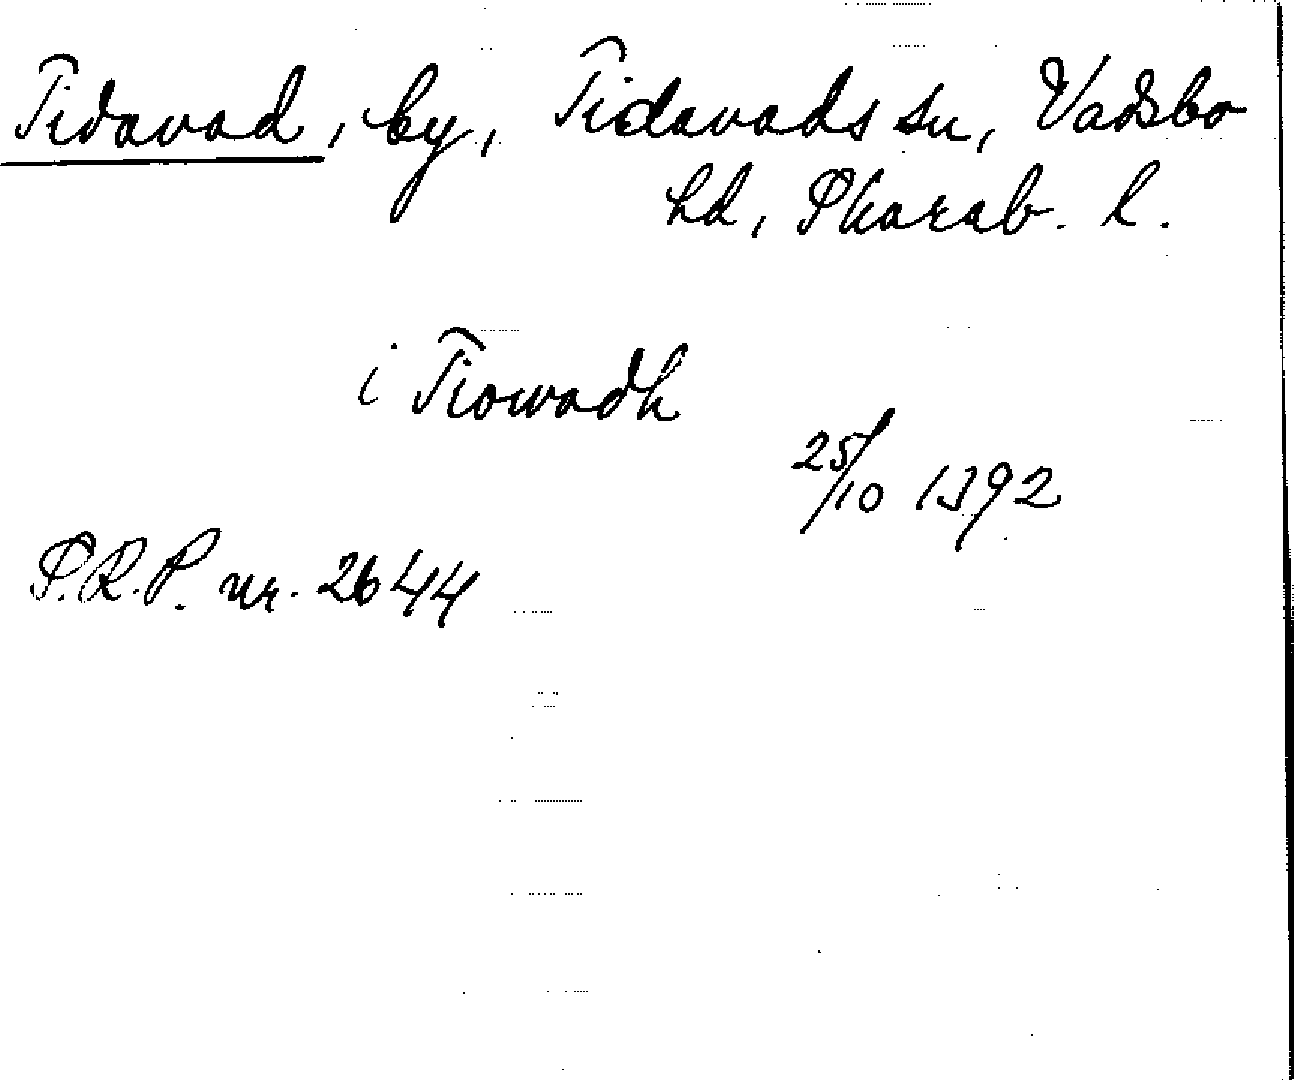 Tidavad, by, Tidavads sn, Vadsbo
hd, Skarab. l.
i Tiowadh
25/10 1392
S.R.P. nr. 2644